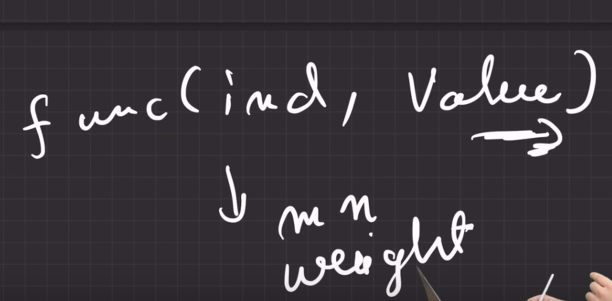 func(ind, Value)
mn
weight